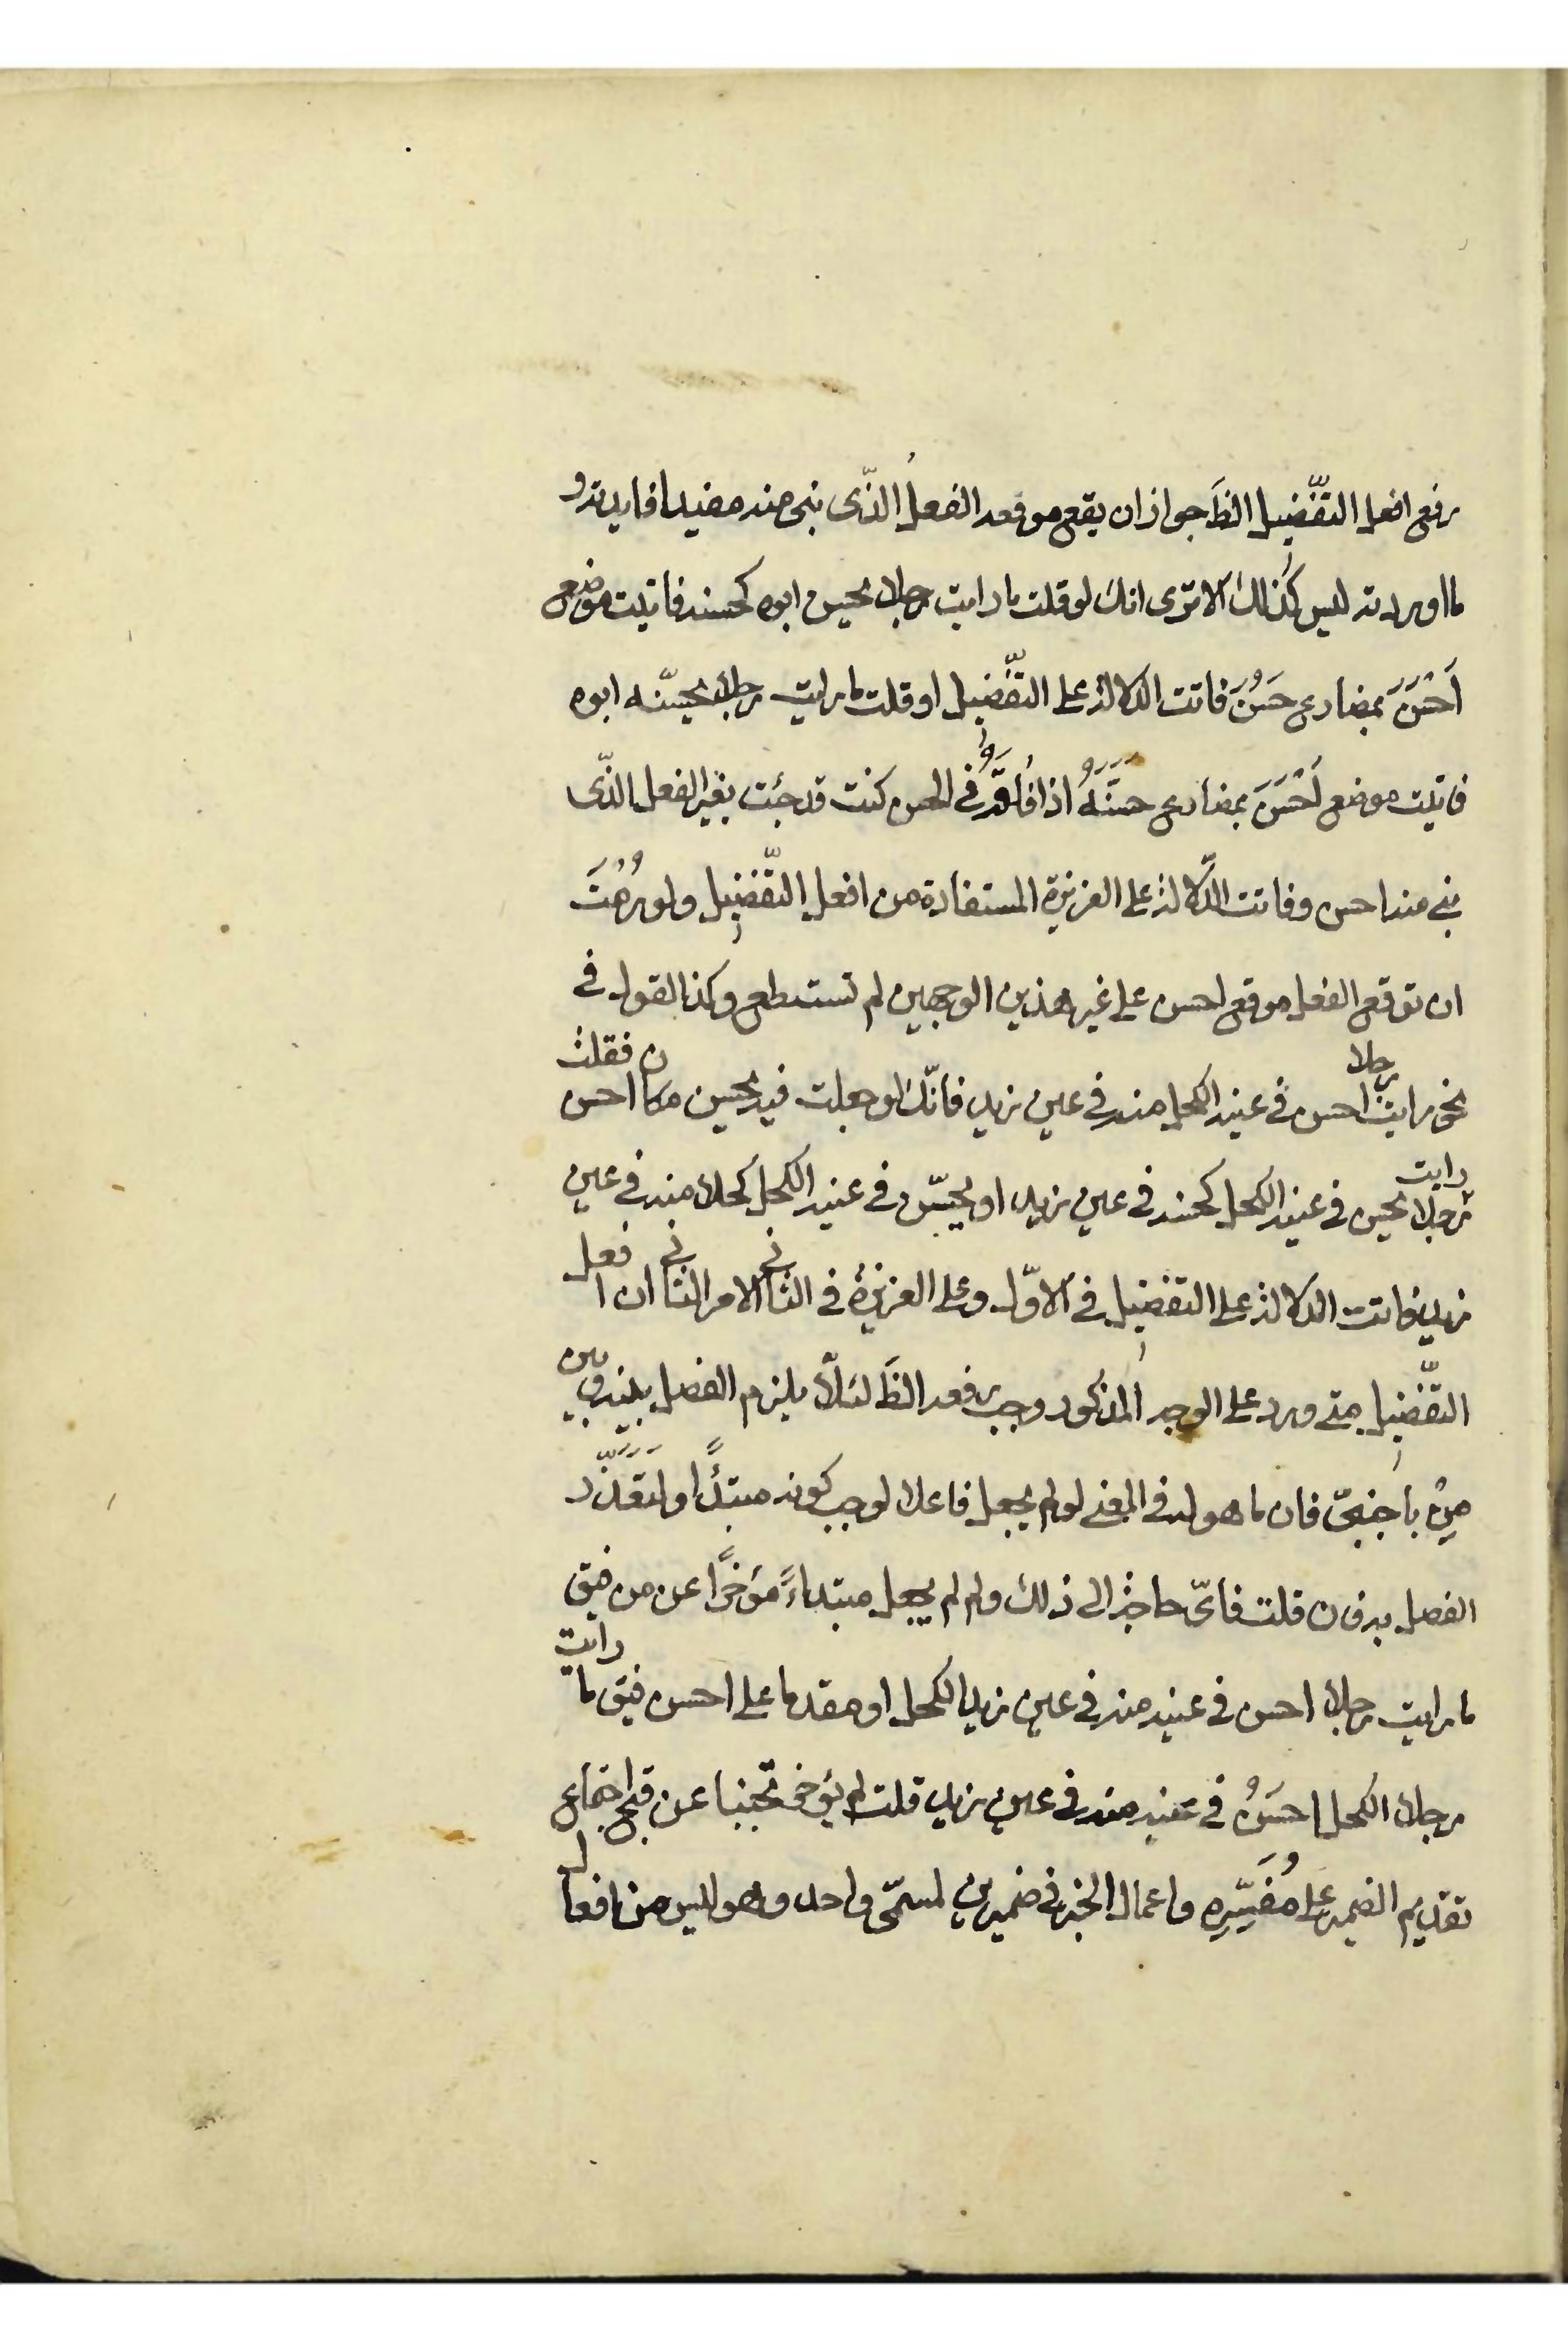 رفع افعل التّفضِيل الظَ جواز ان يقع موقعه الفعلُ الذّى بنى منه مفيدا فايدته و
ما اوردته ليس كذلك الا ترى انك لو قلت ما رايت رجلا يحسن ابوه كحسنه فاتيت موضع
اَحْسَنَ بمضارع حَسُنَ فاتت الدلالة على التّفضِيل او قلت ما رايت رجلا يحسّنه ابوه
فاتيت موضع اَحْسَنَ بمضارع حسَنَهُ اذا فُاقَهُ فى الحسن كنت قد جئت بغير الفعل الذّى
بنى منه احسن وفاتت الدّلالة على الغريزة المستفادة من افعل التّفضِيل ولو رُمْتَ
ان توقع الفعل موقع احسن على غير هذين الوجهين لم تستطع وكذا القول فى
نحو ما رايت رجلا احسن فى عينه الكحل منه فى عين زيد فانّك لو جعلت فيه يحسن مكان احسن فقلت
ما رايت رجلا يحسن فى عينه الكحل كحسنه فى عين زيد او يحسّن فى عينه الكحل كحلا منه فى عين
زيد فاتت الدلالة على التفضِيل فى الاوّل وعلى الغريزة فى الثانى الامر الثانى ان افعل
التّفضِيل متى ورد على الوجه المذكور وجب رفعه الظَ لئلّا يلزم الفصل بينه وبين
مِنْ باجنبىّ فان ما هو له فى المعنى لو لم يجعل فاعلا لوجب كونه مبتدًا ولَتَعَذّر
الفصل به فان قلت فاىّ حاجة الى ذلك ولم لم يجعل مبتداءً مؤخرًا عن من فيق
ما رايت رجلا احسن فى عينه منه فى عين زيد الكحل او مقدما على احسن فيق ما رايت
رجلا الكحل احسَنُ فى عينه منه فى عين زيد قلت لم يؤخر تجنبا عن قبح اجتماع
تقديم الضمير على مُفَسِّرِهِ واعمال الخبر فى ضميرين لمسمّى واحد وهو ليس من افعال